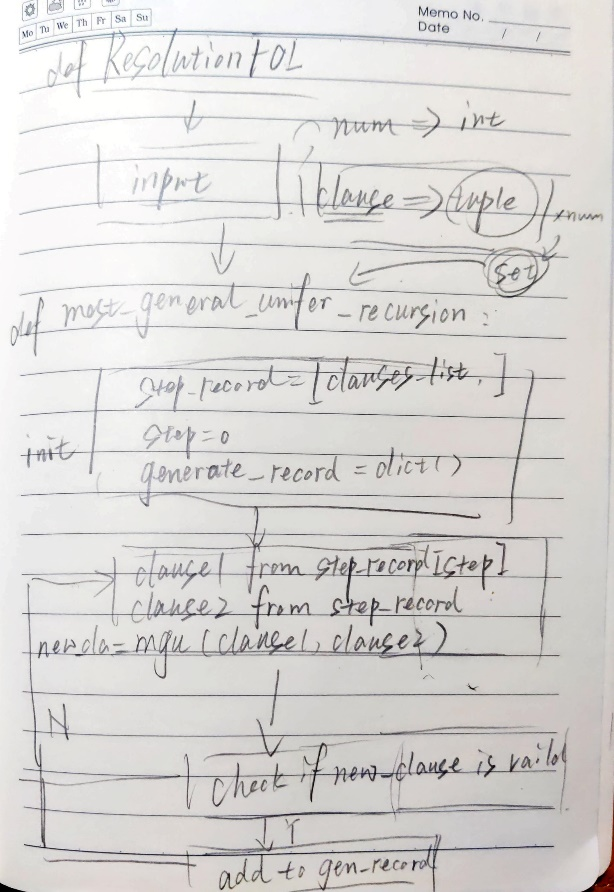 Memo No.
Mo Tu We Th Fr Sa Su
Date / /
def ResolutionFOL
num => int
input
clause => tuple
*num
set
def most_general_unifer_recursion :
init
step_record = [clauses_list, ]
step=0
generate_record = dict()
clause1 from step_record[step]
clause2 from step_record
new_cla = mgu (clause1, clause2)
N
check if new_clause is vaild
T
add to gen-record